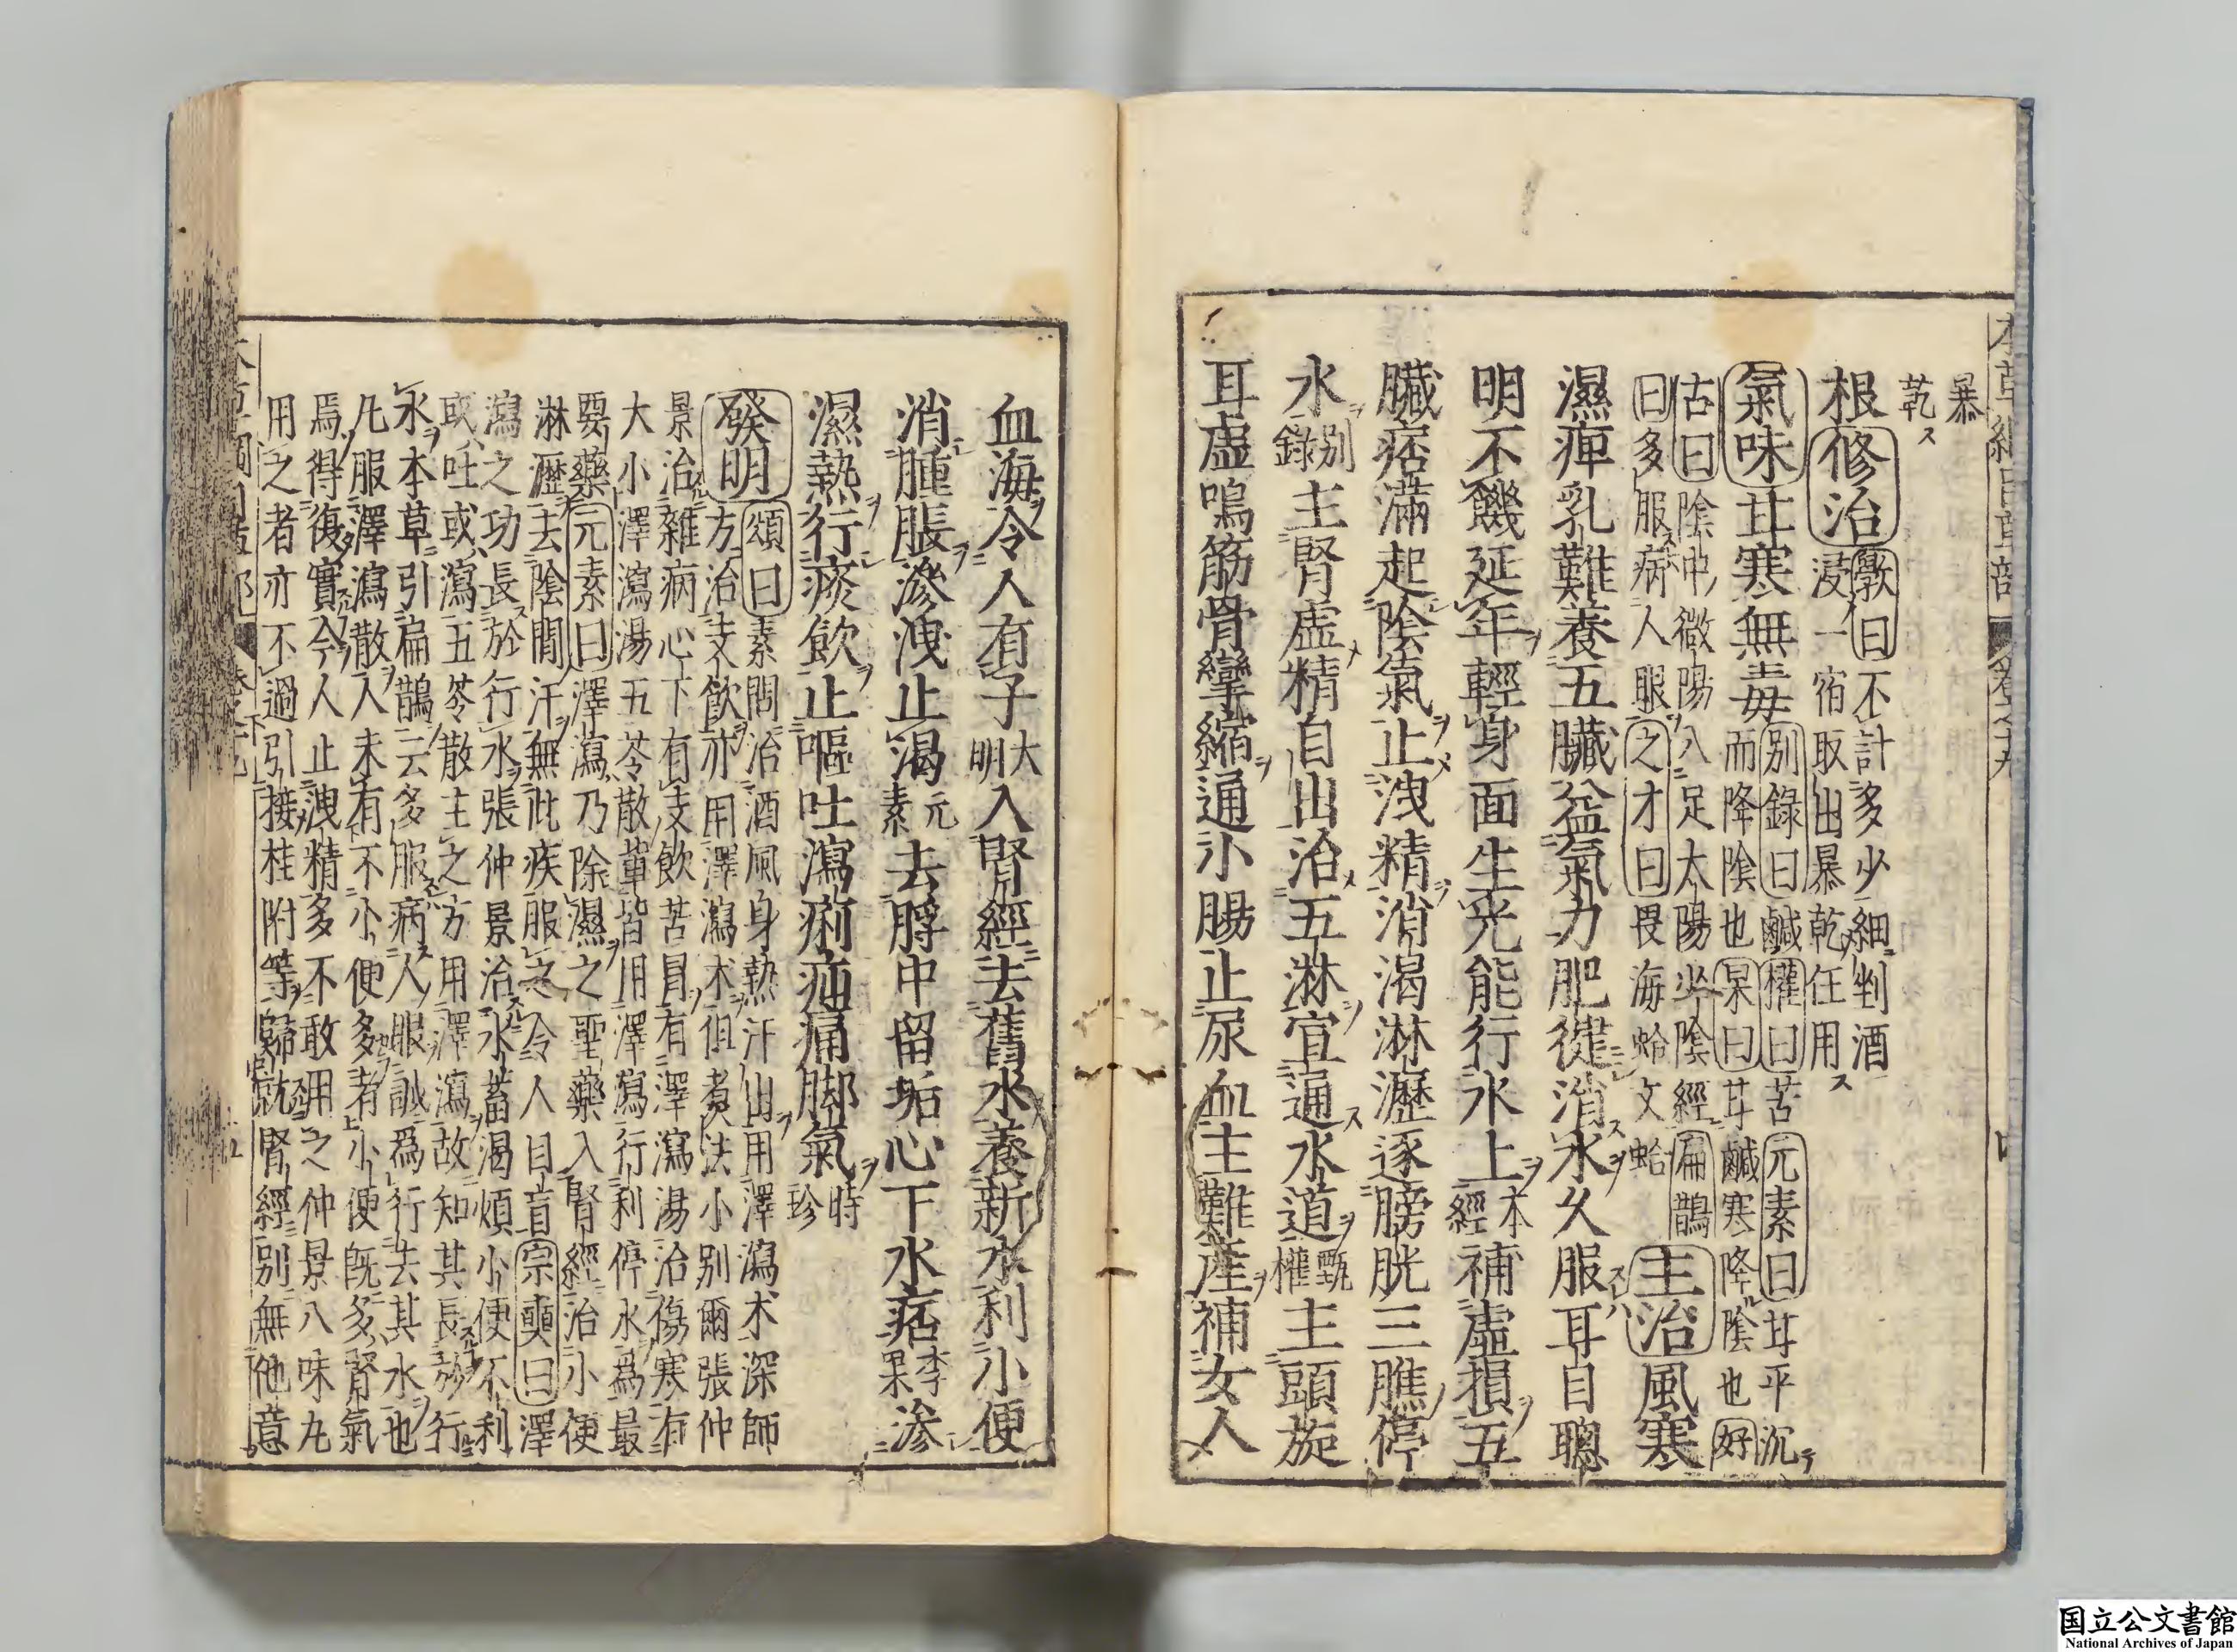 暴
乾ス
根修治斅曰不計多少細剉酒
浸一宿取出暴乾任用ス
氣味甘寒無毒別錄曰鹹權曰苦元素曰甘平沉
而降陰也杲曰甘鹹寒降陰也好
古曰陰中微陽入足太陽少陰經扁鵲
曰多服病人眼之才曰畏海蛤文蛤
主治風寒
濕痺乳難養五臟益氣力肥健消水久服耳目聰
明不饑延年輕身面生光能行水上本經補虛損五
臟痞滿起陰氣止洩精消渴淋瀝逐膀胱三膲停
水別錄主腎虛精自出治五淋宣通水道甄權主頭旋
耳虛鳴筋骨攣縮通小腸止尿血主難產補女人
血海令人有子大明入腎經去舊水養新水利小便
消腫脹滲洩止渴元素去脬中留垢心下水痞李杲滲
濕熱行痰飲止嘔吐瀉痢疝痛脚氣時珍
發明頌曰素問治酒風身熱汗出用澤瀉术深師
方治支飲亦用澤瀉术但煮法小別爾張仲
景治雜病心下有支飲苦冒有澤瀉湯治傷寒有
大小澤瀉湯五苓散輩皆用澤瀉行利停水爲最
要藥元素曰澤瀉乃除濕之聖藥入腎經治小便
淋瀝去陰間汗無此疾服之令人目盲宗奭曰澤
瀉之功長於行水張仲景治水蓄渴煩小便不利
或吐或瀉五苓散主之方用澤瀉故知其長於行
水本草引扁鵲云多服病人眼誠爲行去其水也
凡服澤瀉散人未有不小便多者小便既多腎氣
焉得復實今人止洩精多不敢用之仲景八味丸
用之者亦不過引接桂附等歸就腎經別無他意
国立公文書館
National Archives of Japan